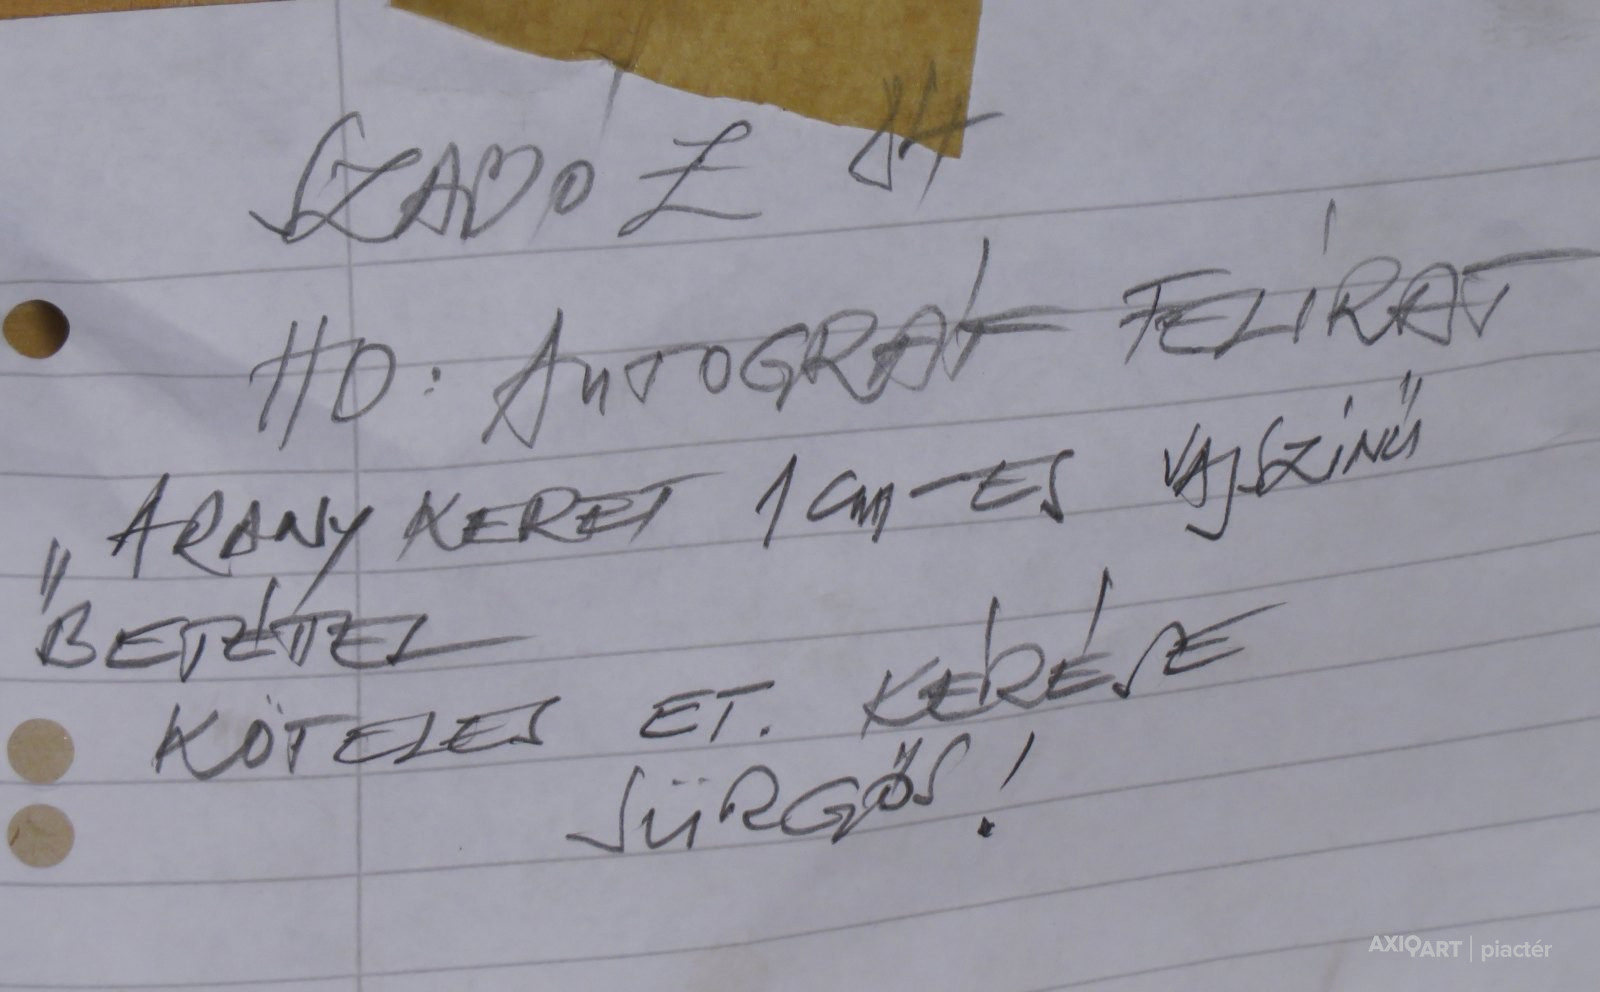 SZABÓ Z
HO: AUTOGRÁF FELIRAT
"ARANY KERET 1 cm-ES VAJSZÍNŰ"
BETÉTTEL
KÖTELES ET. KÉRÉSE
SÜRGŐS!
AXIOART | piactér